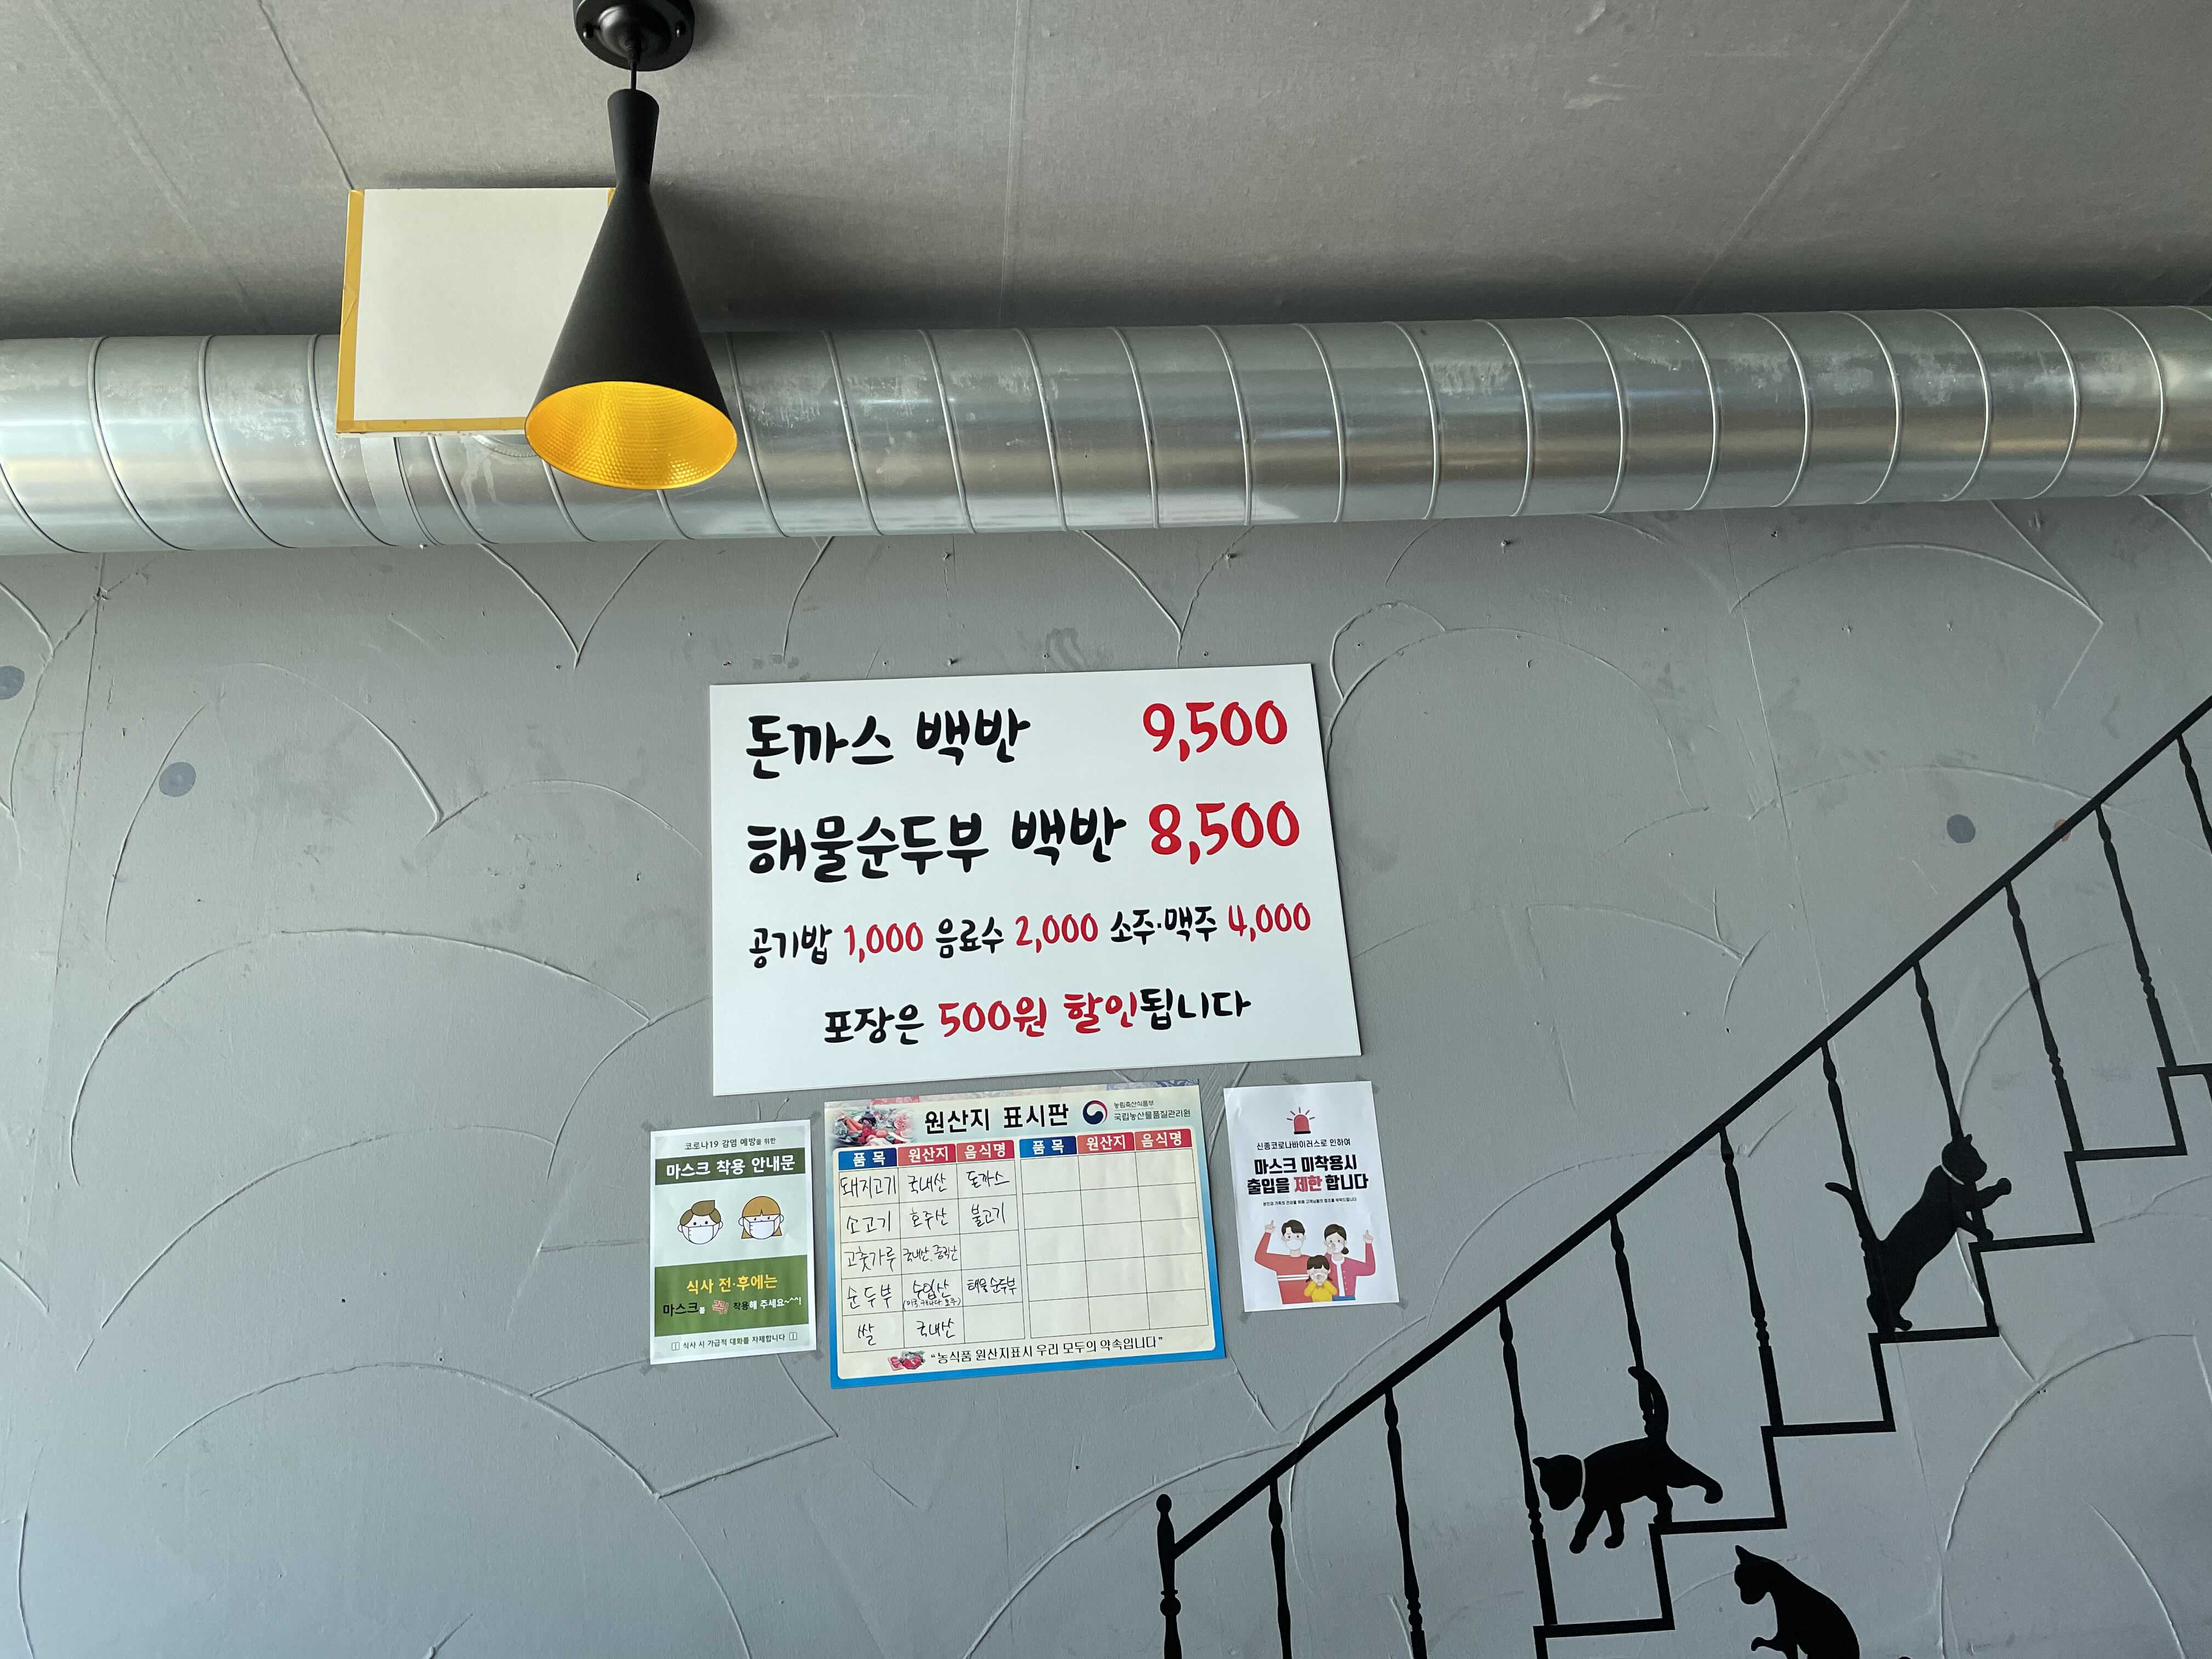 돈까스 백반 9,500
해물순두부 백반 8,500
공기밥 1,000 음료수 2,000 소주·맥주 4,000
포장은 500원 할인됩니다
코로나19 감염 예방을 위한
마스크 착용 안내문
식사 전·후에는
마스크를 꼭! 착용해 주세요~^^!
식사 시 가급적 대화를 자제합니다
원산지 표시판
농림축산식품부
국립농산물품질관리원
품목 원산지 음식명 품목 원산지 음식명
돼지고기 국내산 돈까스
소고기 호주산 불고기
고춧가루 국내산, 중국산
순두부 수입산 해물순두부
(미국 캐나다 호주)
쌀 국내산
"농식품 원산지표시 우리 모두의 약속입니다"
신종코로나바이러스로 인하여
마스크 미착용시
출입을 제한 합니다